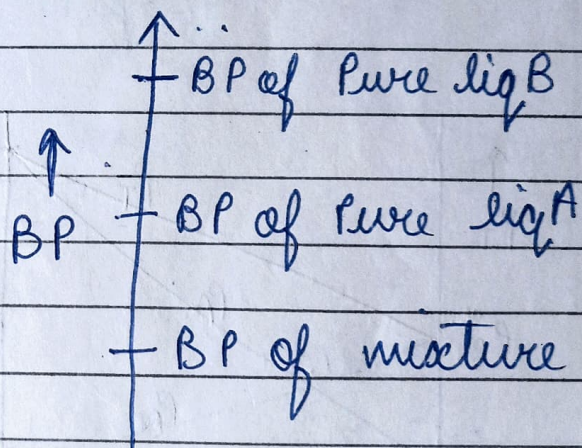 BP of Pure liq B
BP of Pure liq A
BP
BP of mixture